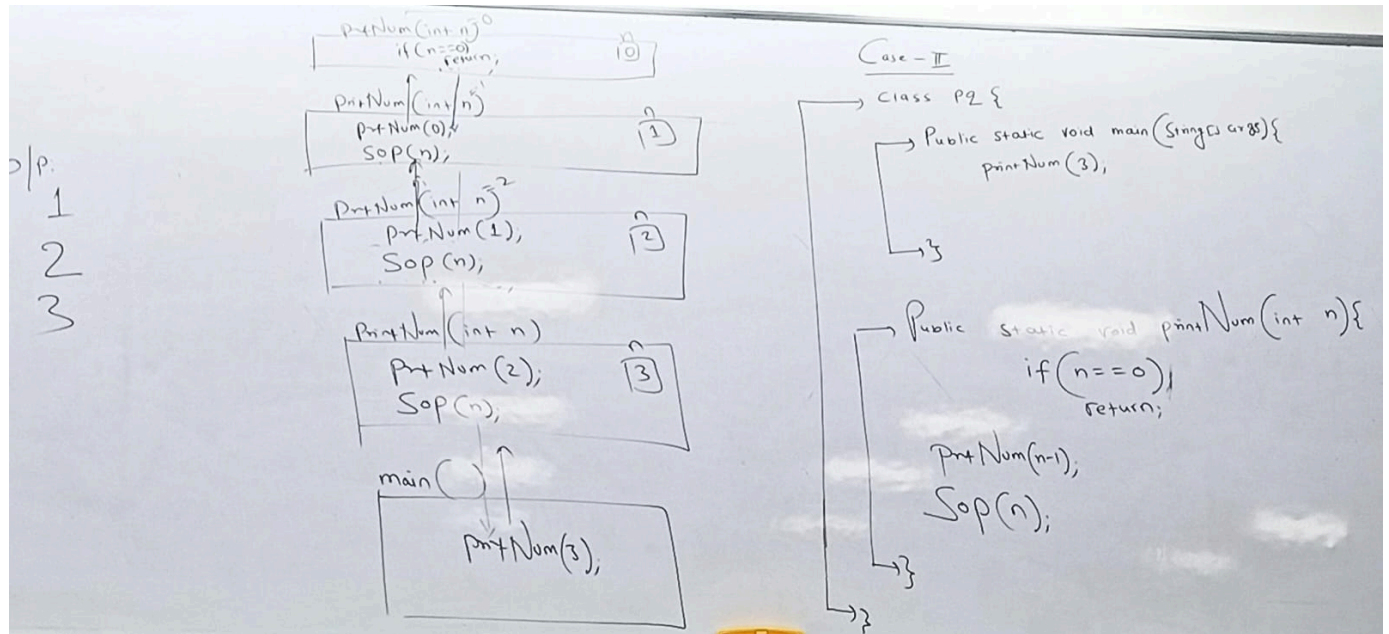 O/P.
1
2
3
prtNum(int n)=0
if(n==0)
return;
n
0
PrintNum(int n)=1
prtNum(0);
SOP(n);
n
1
PrtNum(int n)=2
prt.Num(1);
Sop(n);
n
2
PrintNum(int n)
prtNum(2);
Sop(n);
n
3
main()
printNum(3);
Case-II
Class P2{
Public static void main(String[] args){
printNum(3);
}
Public static void printNum(int n){
if(n==0)
return;
prtNum(n-1);
Sop(n);
}
}